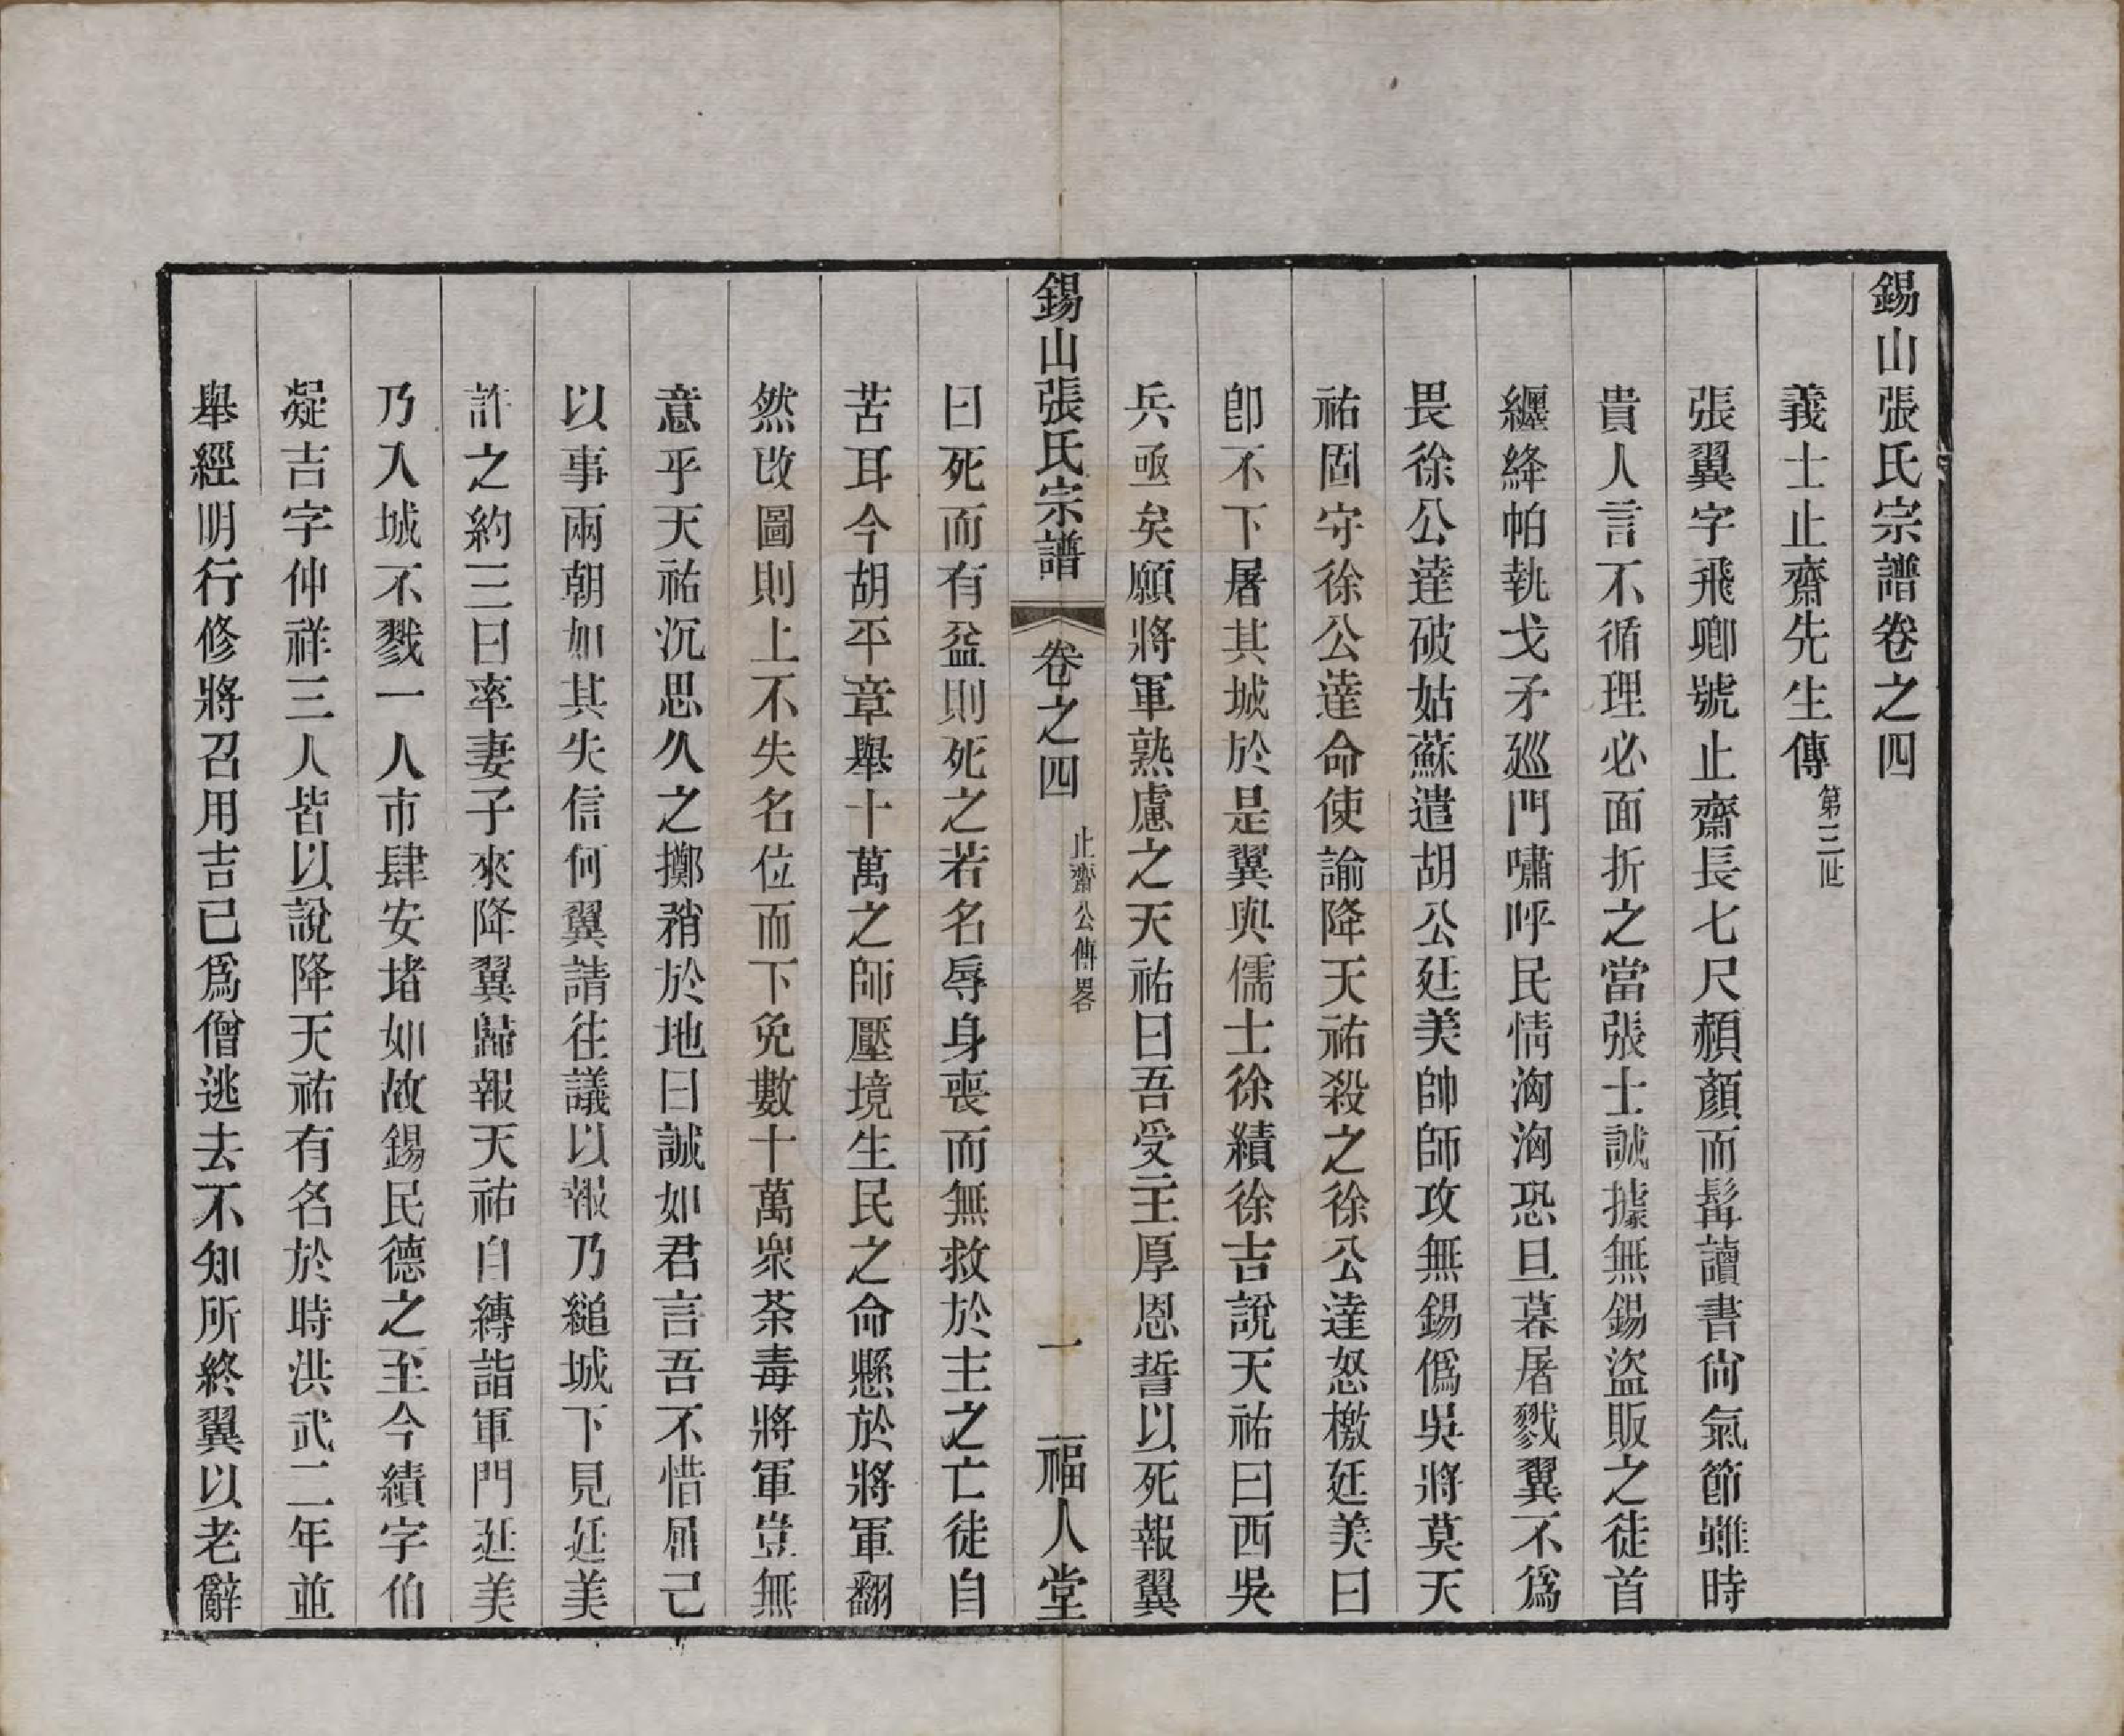 錫山張氏宗譜卷之四
義士止齋先生傳第三世
張翼字飛卿號止齋長七尺頳顏而髯讀書尙氣節雖時
貴人言不循理必面折之當張士誠據無錫盜販之徒首
纏絳帕執戈矛廵門嘯呼民情洶洶恐旦暮屠戮翼不爲
畏徐公達破姑蘇遣胡公廷美帥師攻無錫僞吳將莫天
祐固守徐公達命使諭降天祐殺之徐公達怒檄廷美曰
卽不下屠其城於是翼與儒士徐績徐吉說天祐曰西吳
兵亟矣願將軍熟慮之天祐曰吾受主厚恩誓以死報翼
錫山張氏宗譜
卷之四
止齋公傳畧
一
福人堂
曰死而有益則死之若名辱身喪而無救於主之亡徒自
苦耳今胡平章舉十萬之師壓境生民之命懸於將軍翻
然改圖則上不失名位而下免數十萬衆荼毒將軍豈無
意乎天祐沉思久之擲矟於地曰誠如君言吾不惜屈己
以事兩朝如其失信何翼請往議以報乃縋城下見廷美
許之約三日率妻子來降翼歸報天祐自縛詣軍門廷美
乃入城不戮一人市肆安堵如故錫民德之至今績字伯
凝吉字仲祥三人皆以說降天祐有名於時洪武二年並
舉經明行修將召用吉已爲僧逃去不知所終翼以老辭